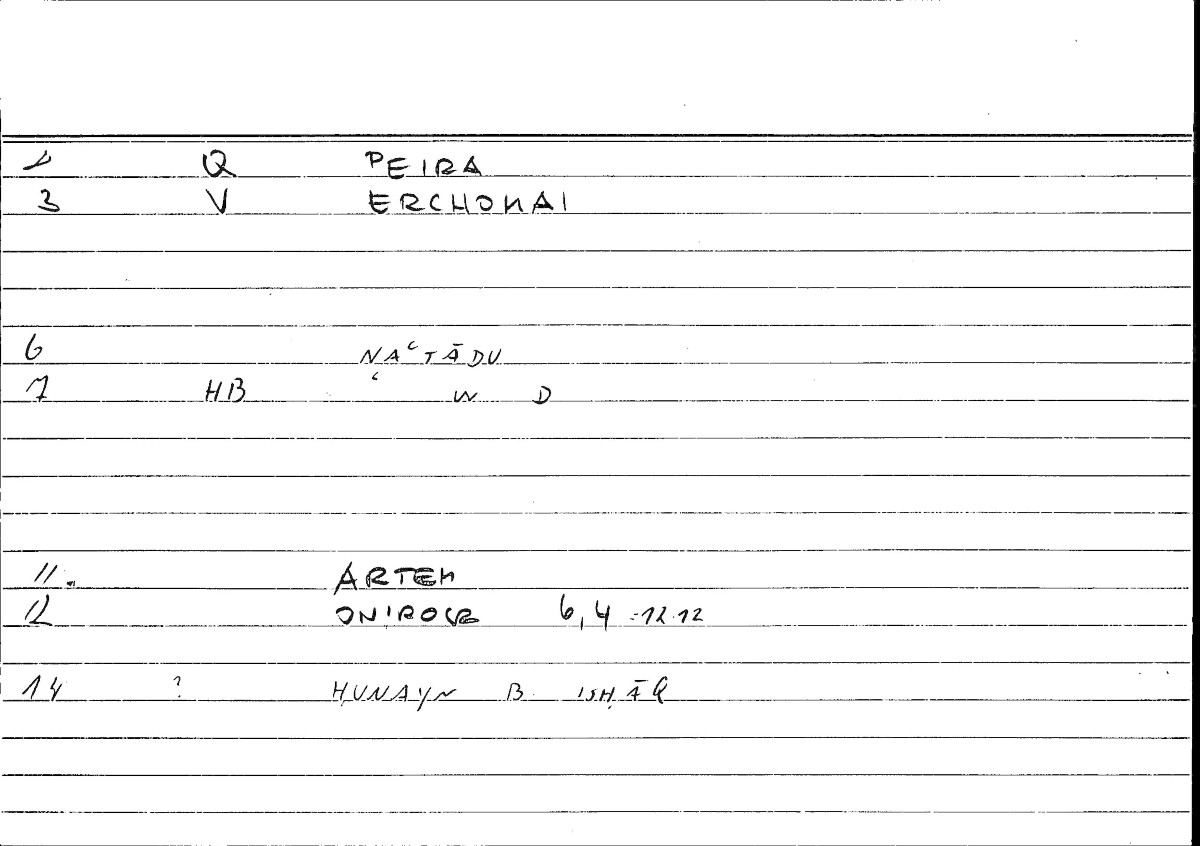 1 Q PEIRA
3 V ERCHOMAI
6 NAʿTĀDU
7 HB ʿ W D
11. ARTEM
12 ONIROCR 6,4 = 12.12
14 ? ḤUNAYN B. ISḤĀQ